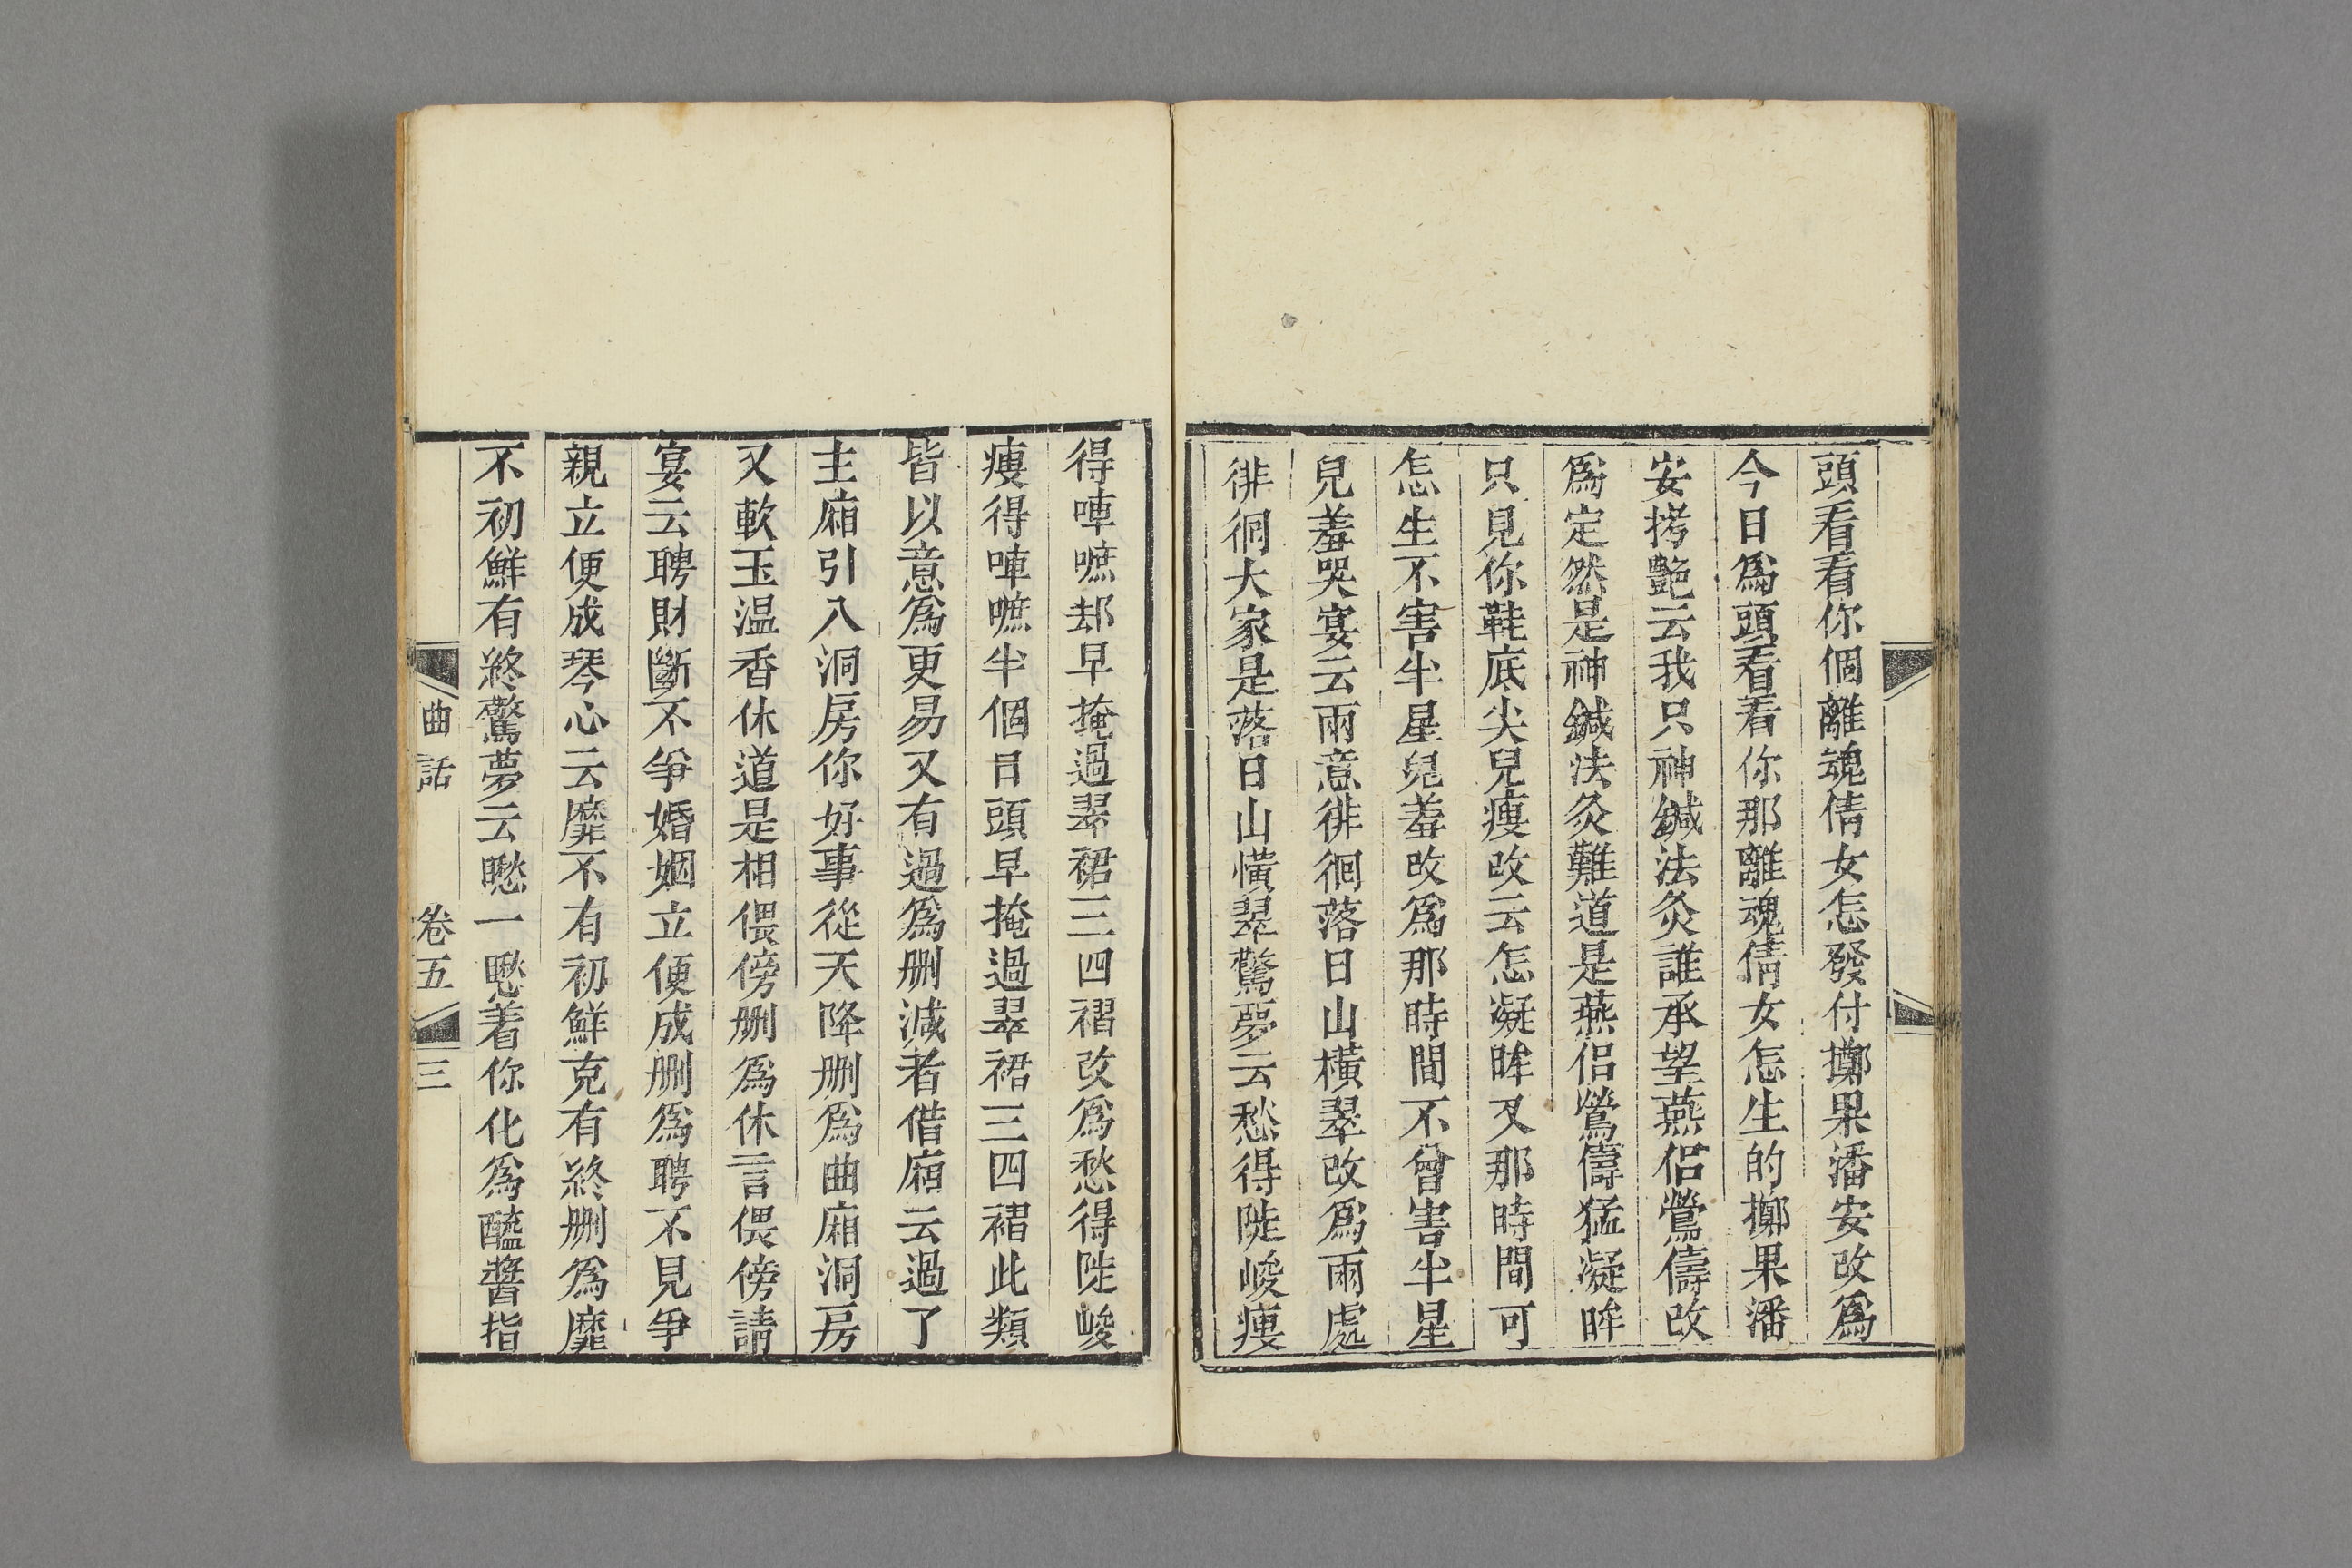 頭看看你個離魂倩女怎發付擲果潘安改爲
今日爲頭看看你那離魂倩女怎生的擲果潘
安拷艷云我只神鍼法灸誰承望燕侶鶯儔改
爲定然是神鍼法灸難道是燕侶鶯儔猛凝眸
只見你鞋底尖兒瘦改云怎凝眸又那時間可
怎生不害半星兒羞改爲那時間不曾害半星
兒羞哭宴云兩意徘徊落日山橫翠改爲兩處
徘徊大家是落日山橫翠驚夢云愁得陡峻瘦
得唓嗻却早掩過翠裙三四褶改爲愁得陡峻
瘦得唓嗻半個日頭早掩過翠裙三四褶此類
皆以意爲更易又有過爲删減者借廂云過了
主廂引入洞房你好事從天降删爲曲廂洞房
又軟玉温香休道是相偎傍删爲休言偎傍請
宴云聘財斷不爭婚姻立便成删爲聘不見爭
親立便成琴心云靡不有初鮮克有終删爲靡
不初鮮有終驚夢云瞅一瞅着你化爲醯醬指
曲話　卷五　三